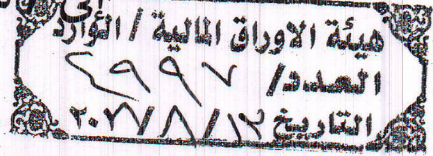 هيئة الاوراق المالية / الوارد
العدد/ ٤٩٩٧
التاريخ ١٣/٨/٢٠٢٦